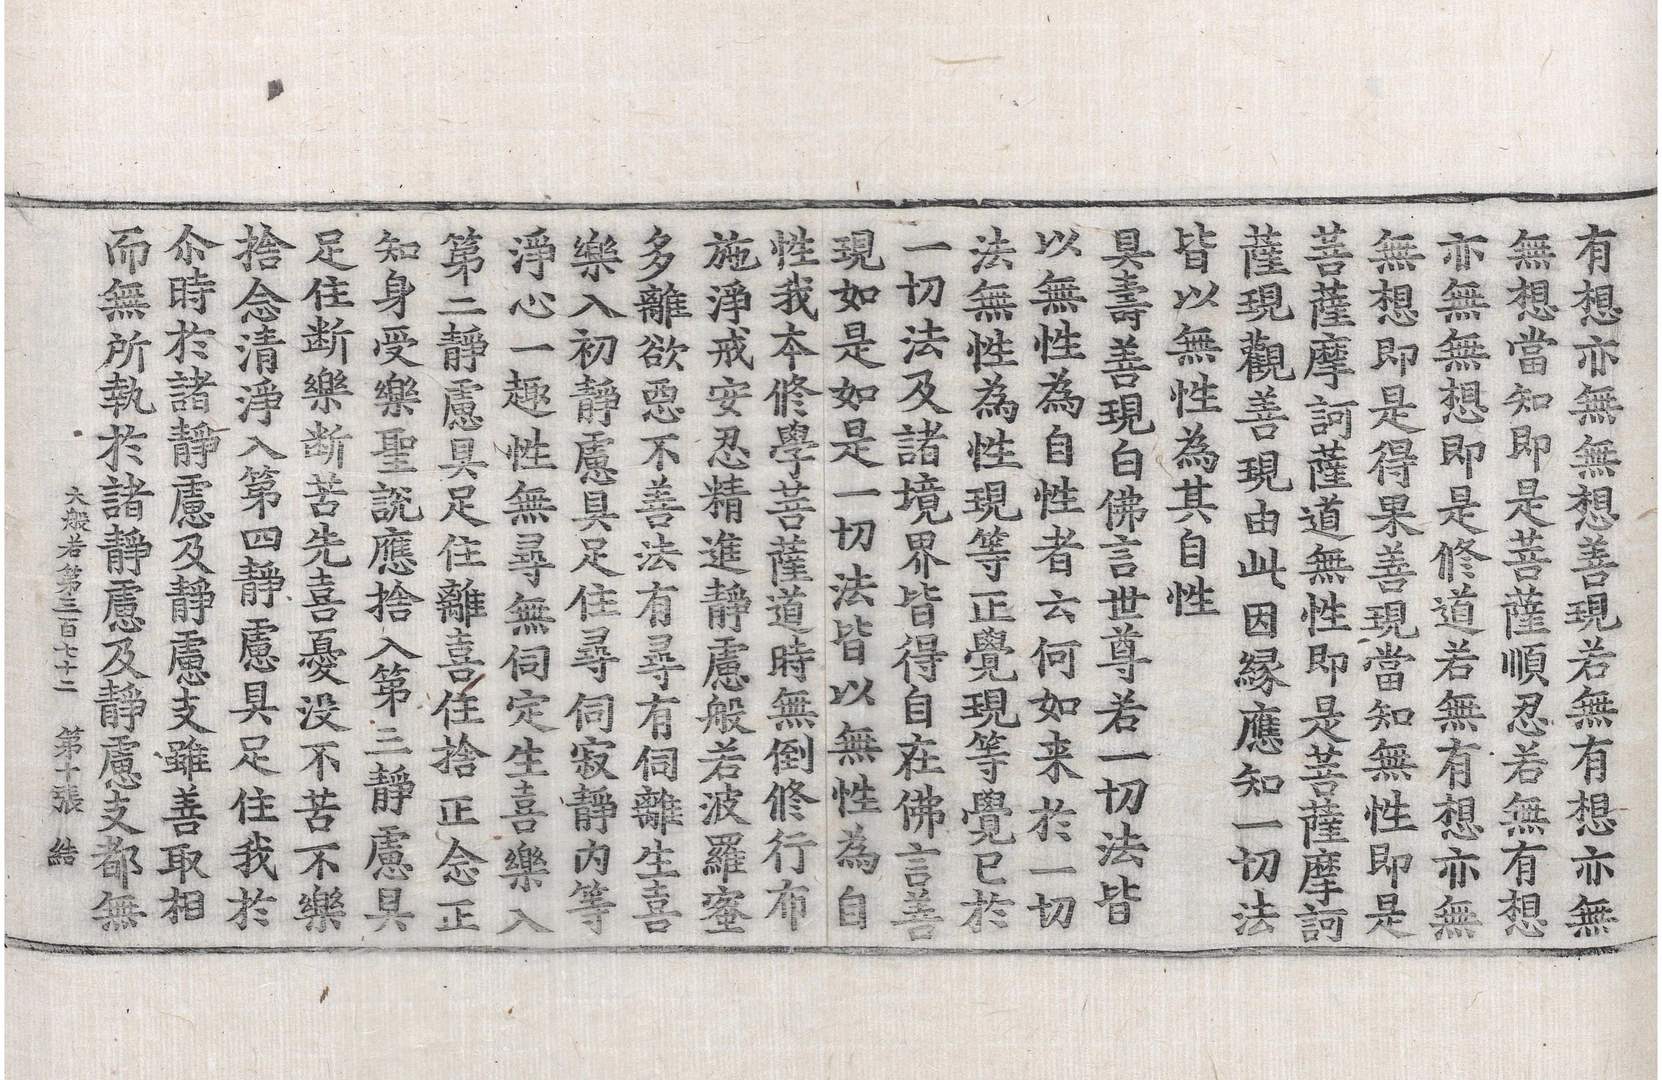 有想亦無無想善現若無有想亦無
無想當知即是菩薩順忍若無有想
亦無無想即是修道若無有想亦無
無想即是得果善現當知無性即是
菩薩摩訶薩道無性即是菩薩摩訶
薩現觀善現由此因緣應知一切法
皆以無性為其自性
具壽善現白佛言世尊若一切法皆
以無性為自性者云何如来於一切
法無性為性現等正覺現等覺已於
一切法及諸境界皆得自在佛言善
現如是如是一切法皆以無性為自
性我本修學菩薩道時無倒修行布
施淨戒安忍精進靜慮般若波羅蜜
多離欲惡不善法有尋有伺離生喜
樂入初靜慮具足住尋伺寂靜內等
淨心一趣性無尋無伺定生喜樂入
第二靜慮具足住離喜住捨正念正
知身受樂聖說應捨入第三靜慮具
足住断樂断苦先喜憂没不苦不樂
捨念清淨入第四靜慮具足住我於
尒時於諸靜慮及靜慮支雖善取相
而無所執於諸靜慮及靜慮支都無
大般若第三百七十二 第十張 結